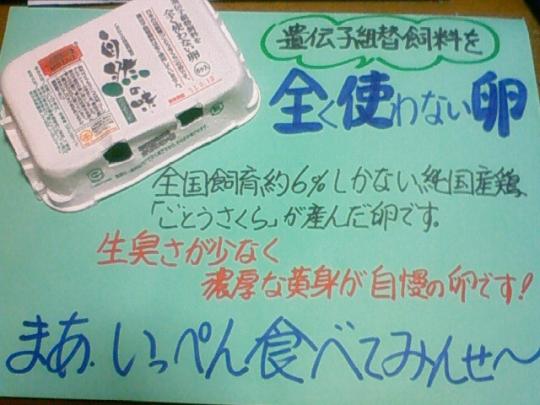 遺伝子組替飼料を
全く使わない卵
自然の味
全国飼育約6%しかない純国産鶏、
「ごとうさくら」が産んだ卵です。
生臭さが少なく
濃厚な黄身が自慢の卵です!
まあ、いっぺん食べてみんせ〜